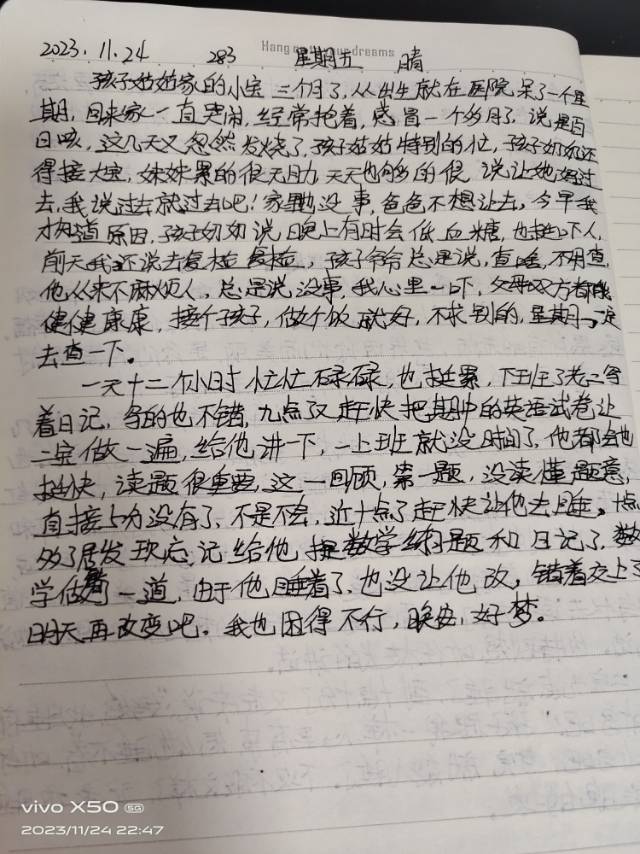 Hang on to your dreams
2023.11.24 283 星期五 晴
孩子姑姑家的小宝三个月了,从出生就在医院呆了一个星
期,回来家一直哭闹,经常抱着,感冒一个多月了,说是百
日咳,这几天又忽然发烧了,孩子姑姑特别的忙,孩子奶奶还
得接大宝,妹妹累的很无助,天天也够多的很,说让她妈过
去,我说过去就过去吧!家里也没事,爸爸不想让去,今早我
才知道原因,孩子奶奶说晚上有时会低血糖,也挺吓人,
前天我还说去复检复检,孩子爷爷总是说,查啥,不用查,
他从来不麻烦人,总是说没事,我心里一吓,父母双方都能
健健康康,接个孩子,做个饭就好,不求别的,星期一定
去查一下。
一天十二个小时忙忙碌碌,也挺累,下班了老二写
着日记,写的也不错,九点又赶快把期中的英语试卷让
二宝做一遍,给他讲一下,一上班就没时间了,他都会他
挺快,读题很重要,这一回顾,第一题,没读懂题意,
直接5分没有了,不是不会,近十点了赶快让他去睡。十点
多了居发现忘记给他提数学练习题和日记了,数
学做错了一道,由于他睡着了,也没让他改,错着交上了
明天再改变吧。我也困得不行,晚安,好梦。
vivo X50 5G
2023/11/24 22:47